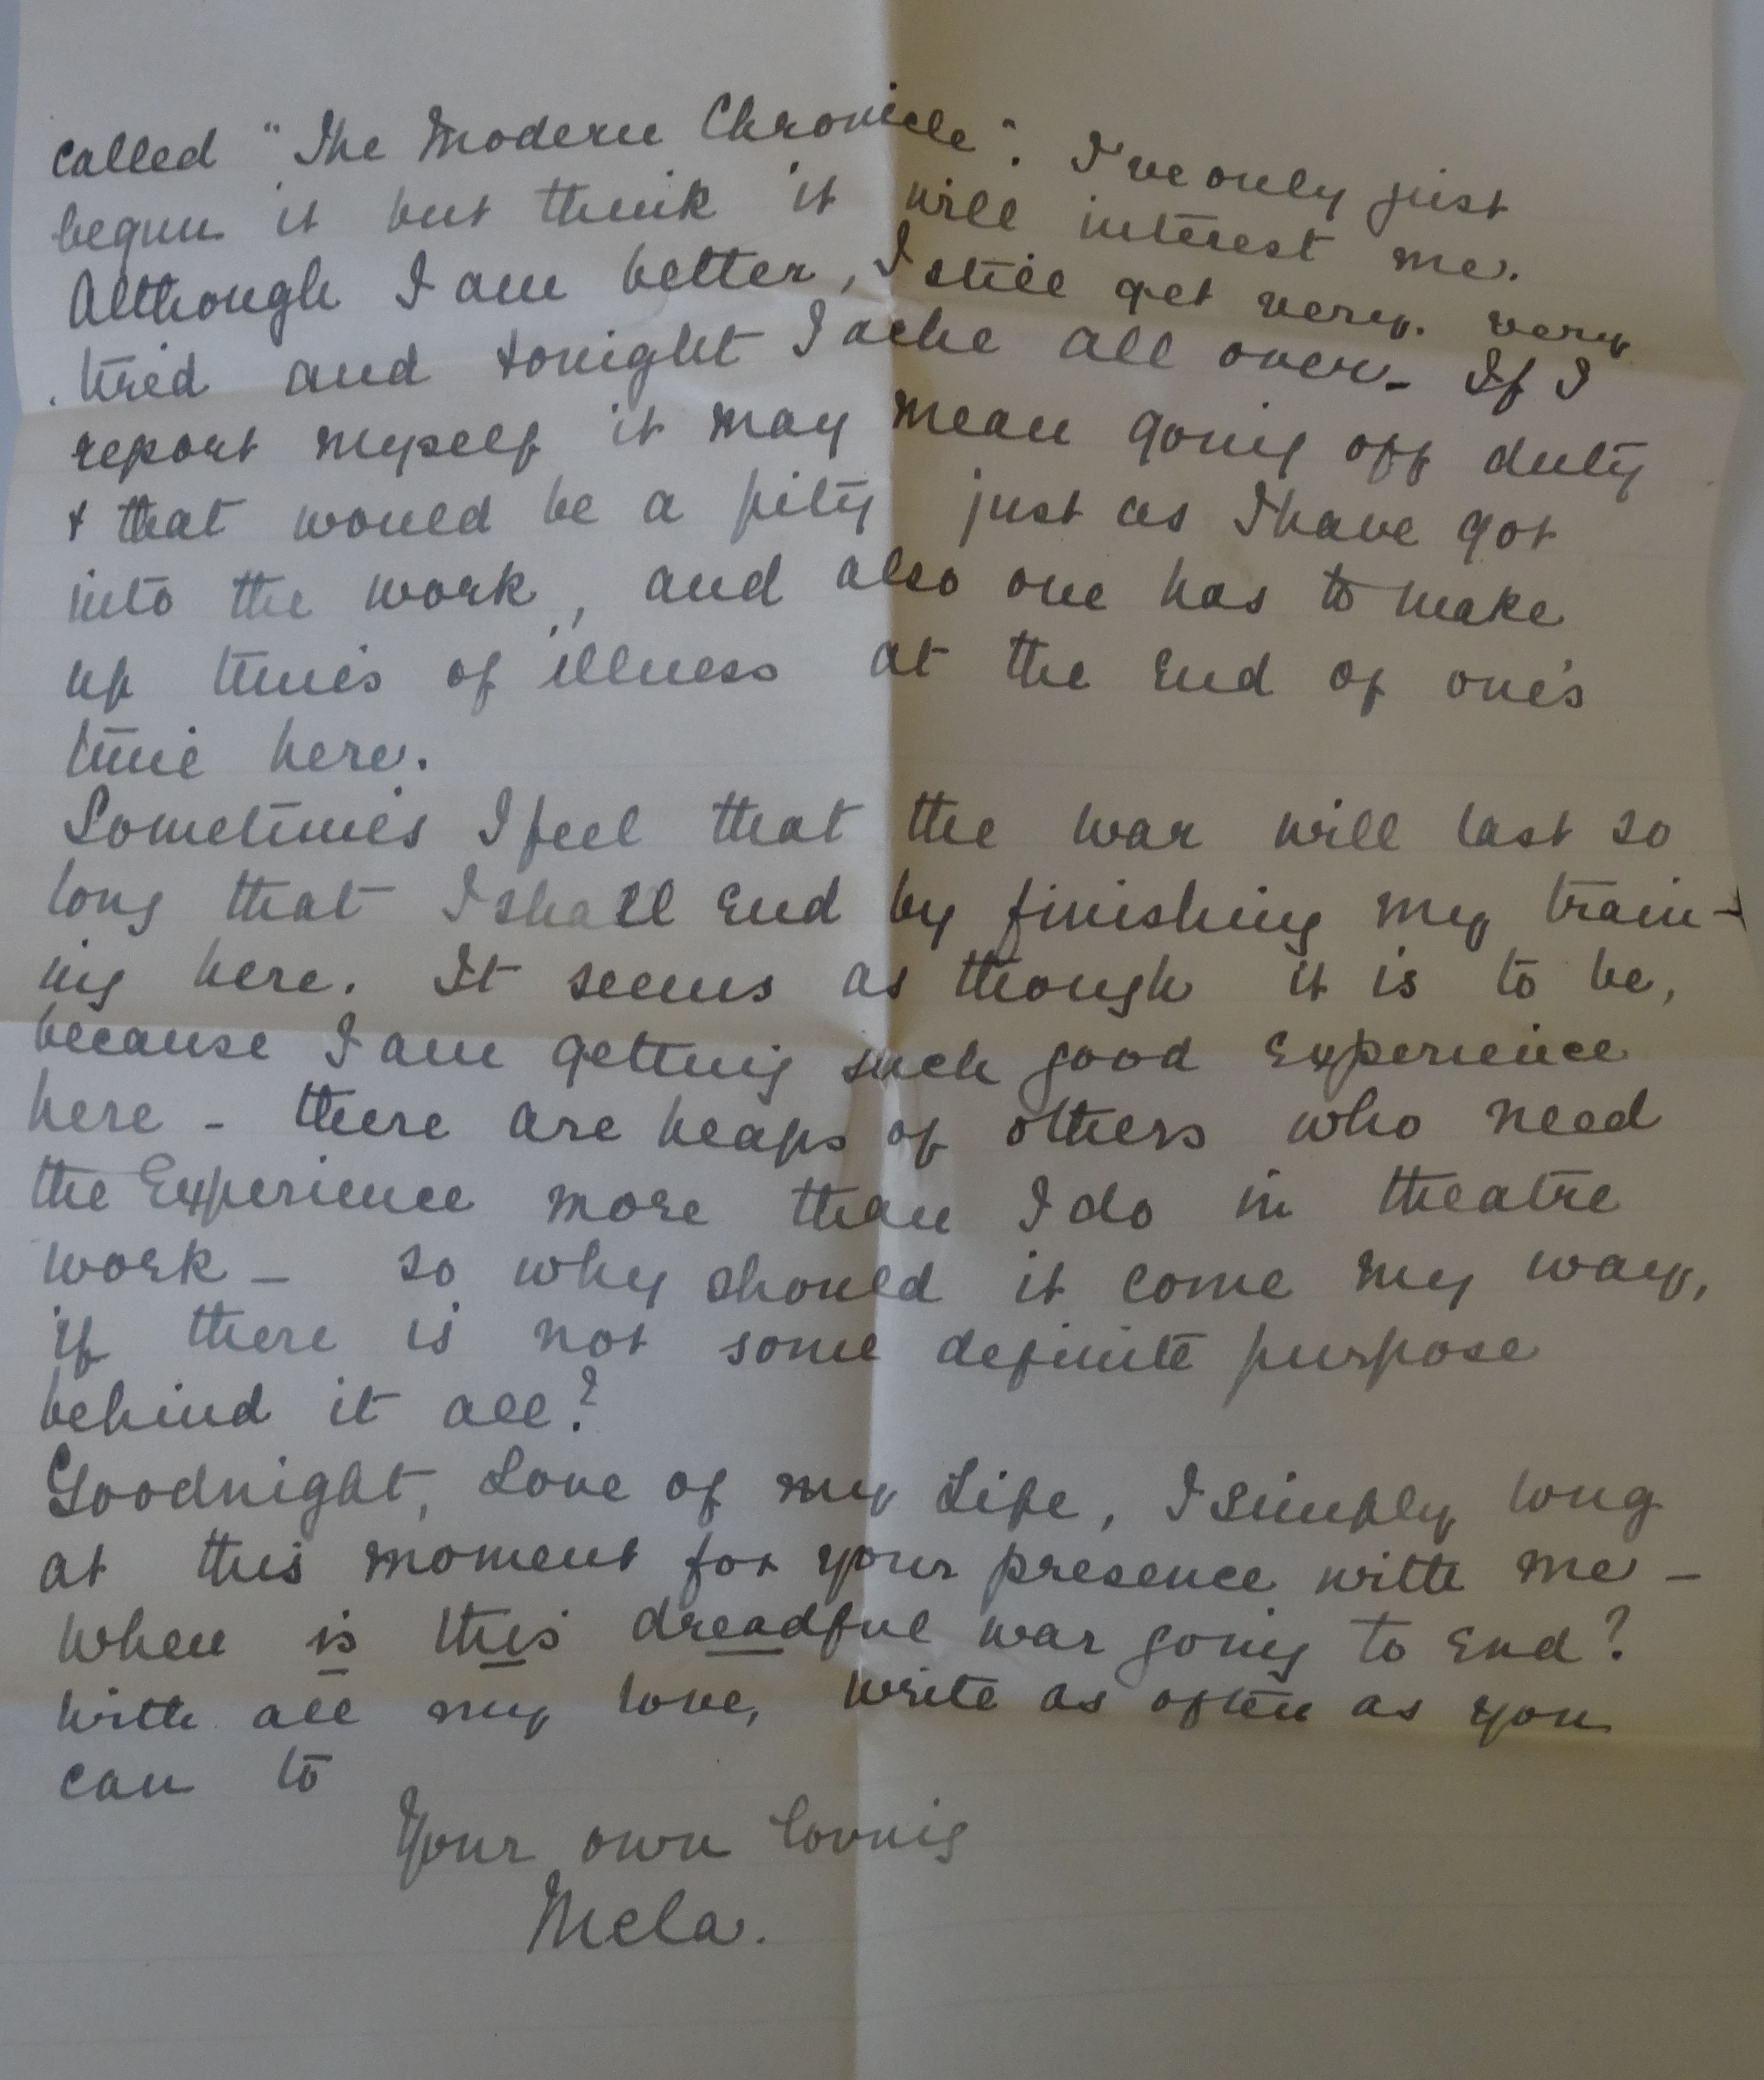 called "The Modern Chronicle". I've only just
begun it but think it will interest me.
Although I am better, I still get very. very
tired and tonight I ache all over - If I
report myself it may mean going off duty
& that would be a pity just as I have got
into the work, and also one has to make
up times of illness at the end of one's
time here.
Sometimes I feel that the war will last so
long that I shall end by finishing my train-
ing here. It seems as though it is to be,
because I am getting such good experience
here - there are heaps of others who need
the Experience more than I do in theatre
work - so why should it come my way,
if there is not some definite purpose
behind it all?
Goodnight, Love of my Life, I simply long
at this moment for your presence with me -
When is this dreadful war going to end?
With all my love, write as often as you
can to
Your own loving
Mela.